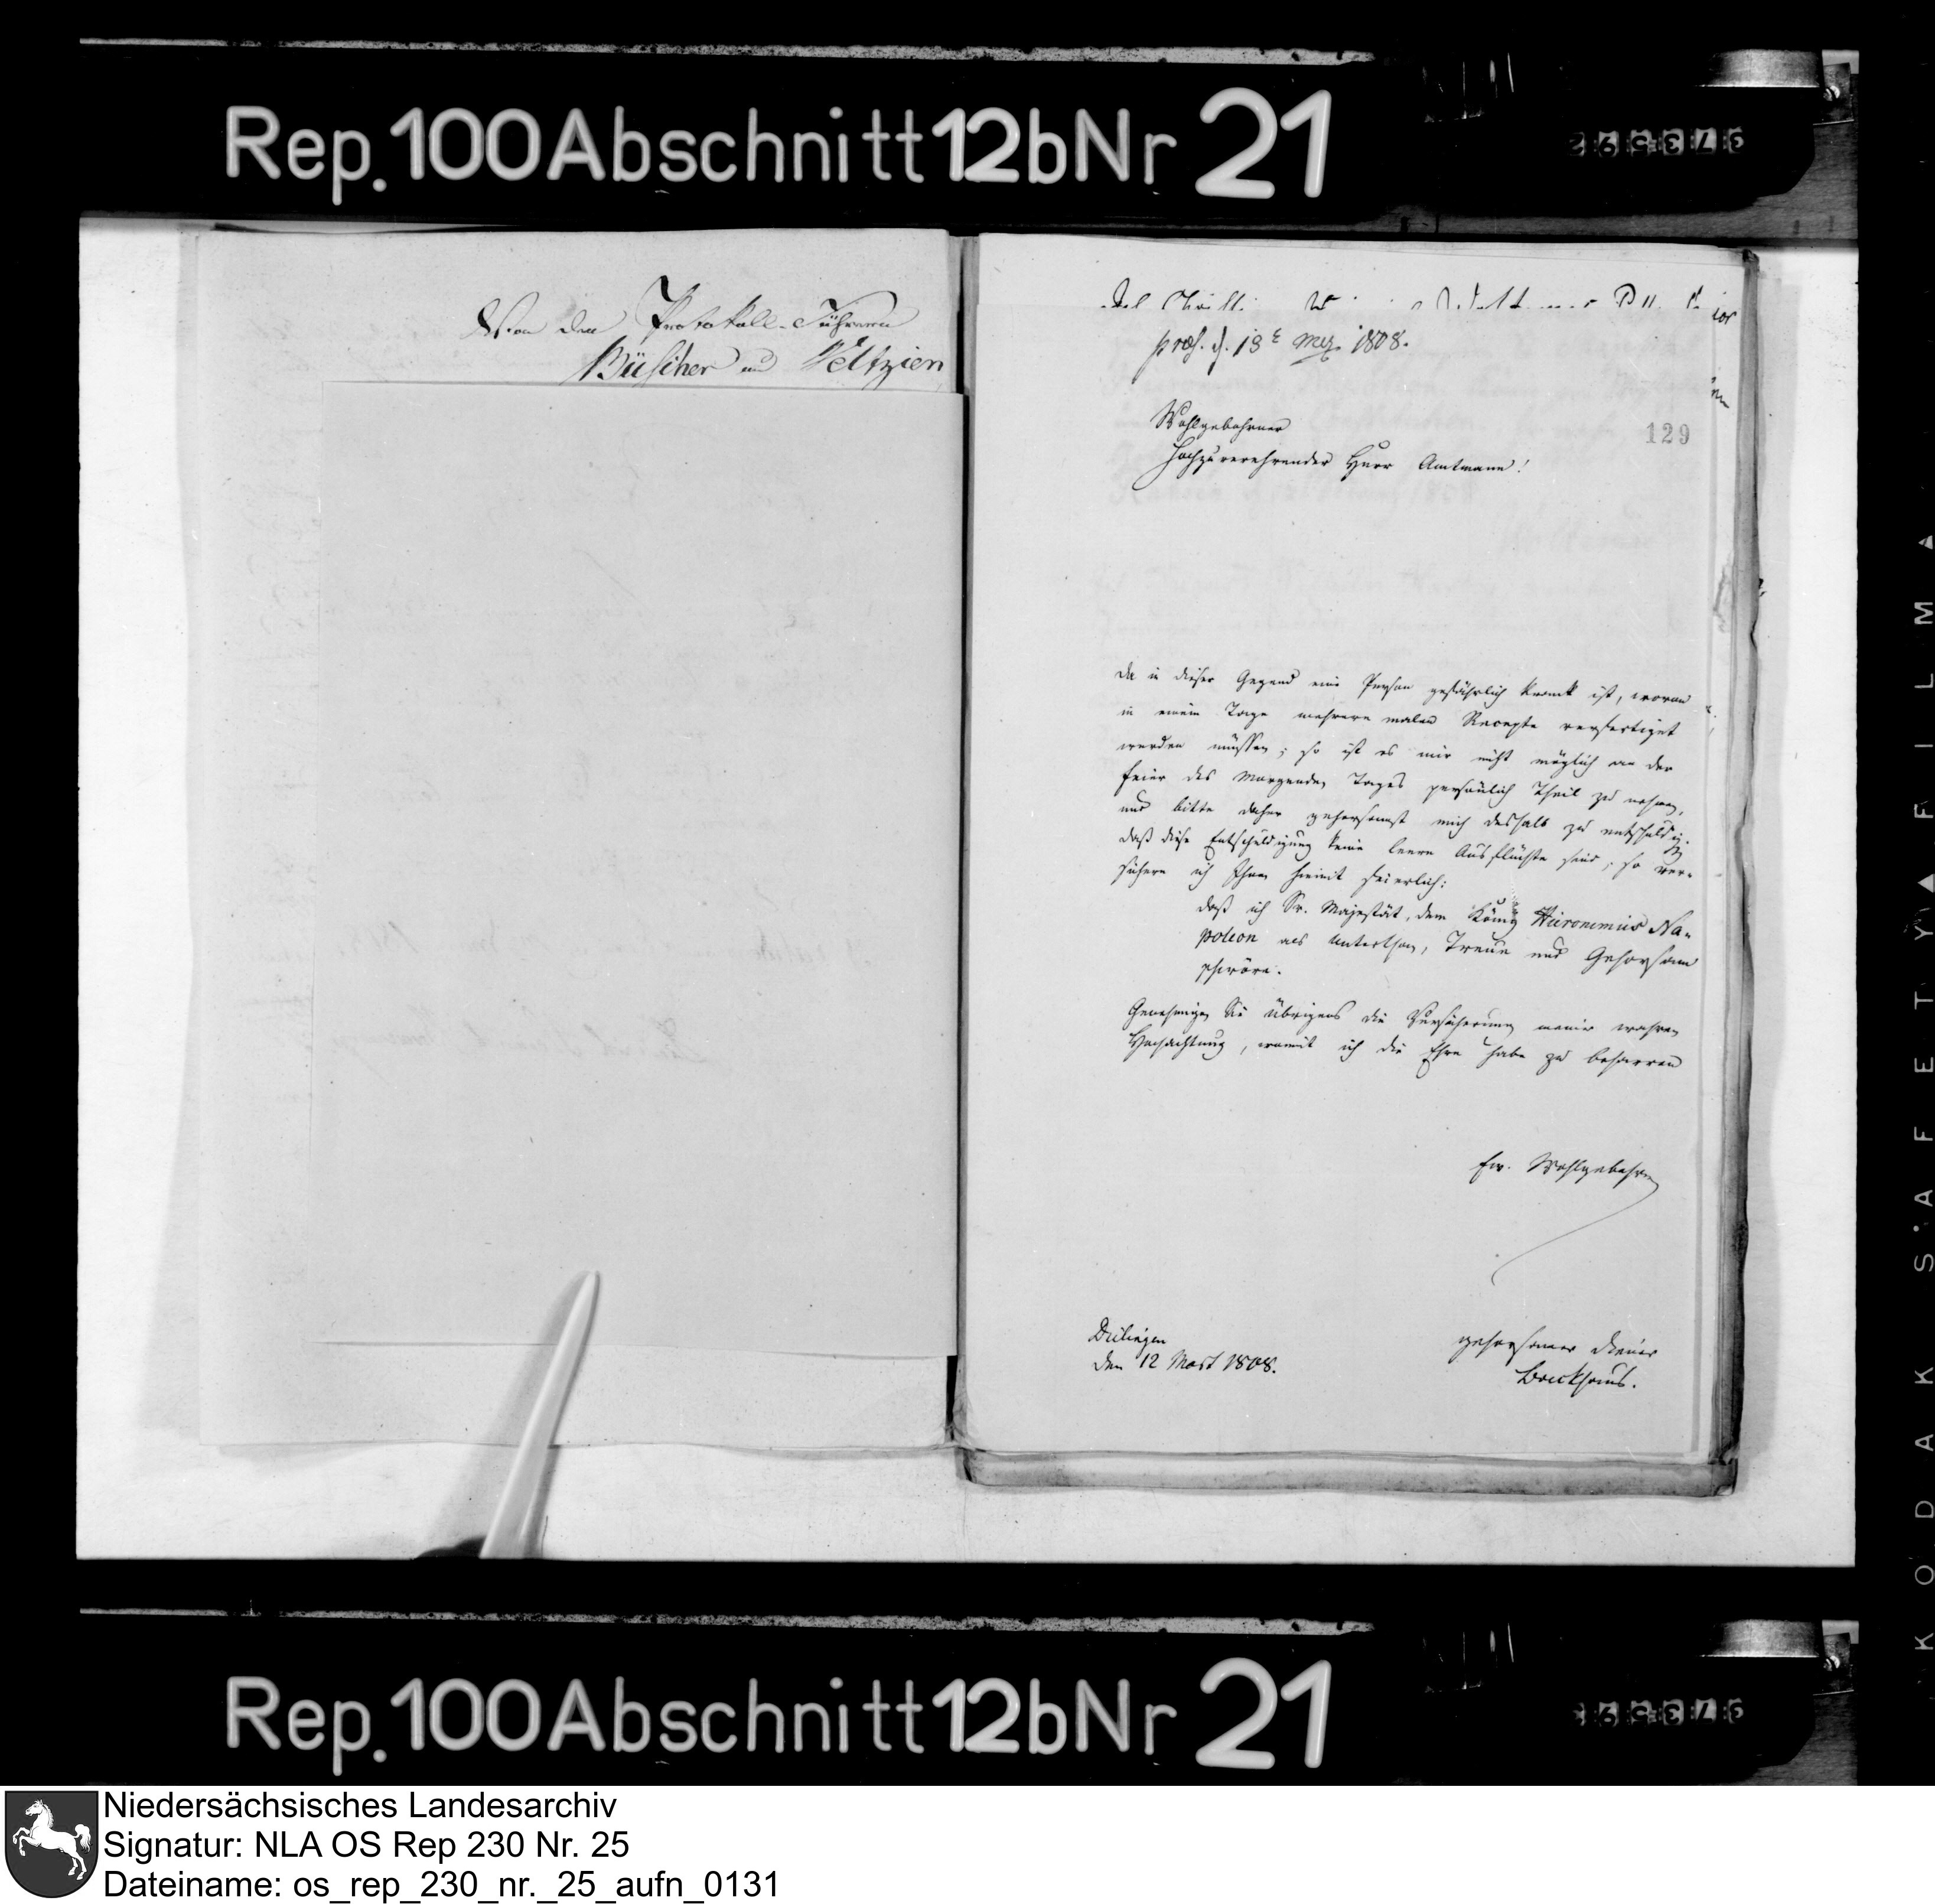 Rep. 100 Abschnitt 12b Nr 21
Von den Protokoll-Führern
Büscher und Veltzien
præs. d. 13t Merz 1808.
129
Wohlgebohrner
Hochzuverehrender Herr Amtmann!
Da in dieser Gegend eine Person gefährlich krank ist, wovon
in einem Tage mehrere malen Recepte verfertiget
werden müssen; so ist es mir nicht möglich an der
Feier des morgenden Tages persönlich Theil zu nehmen,
und bitte daher gehorsamst mich deshalb zu entschuldig.
daß diese Entschuldigung keine leere Ausflüchte sind; so ver-
sichere ich Ihnen hiemit feierlich:
daß ich Sr. Majestät, dem König Hieronimus Na-
poleon als Unterthan, Treue und Gehorsam
schwöre.
Genehmigen Sie übrigens die Versicherung meiner wahren
Hochachtung, womit ich die Ehre habe zu beharren
Ew. Wohlgebohrn
den 12 Mart 1808.
gehorsamer Diener
Brickhaus.
Rep. 100 Abschnitt 12b Nr 21
KODAK SAFETY FILM
Niedersächsisches Landesarchiv
Signatur: NLA OS Rep 230 Nr. 25
Dateiname: os_rep_230_nr._25_aufn_0131